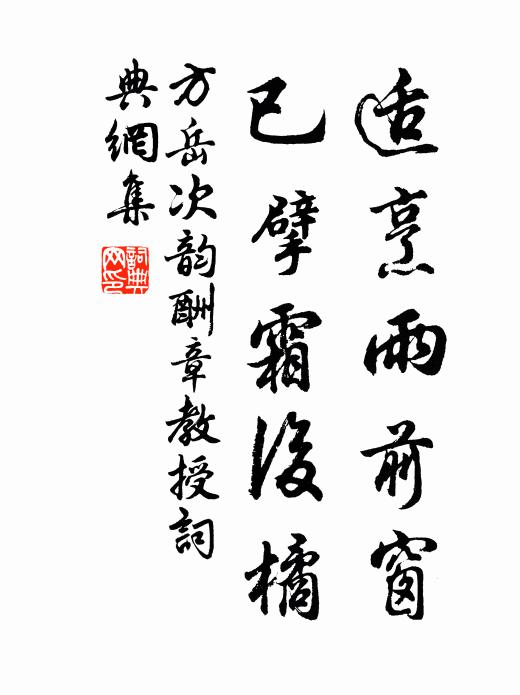 适烹雨前窗
已擘霜後橘
方岳次韵酬章教授詞
典網集
詞典
网印